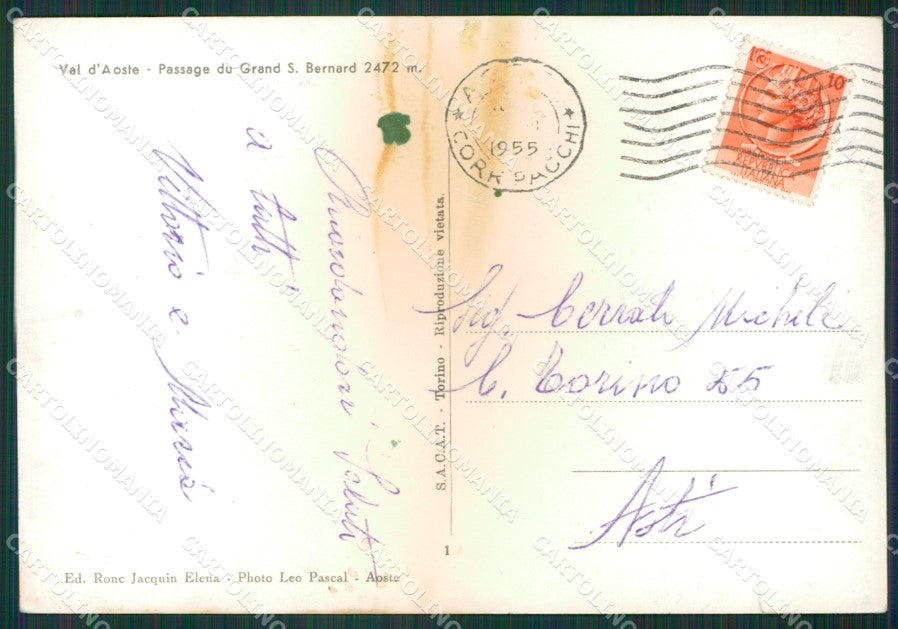 Val d'Aoste - Passage du Grand S. Bernard 2472 m.
saluti
a tutti
Vittorio e Maria
Ed. Ronc Jacquin Elena - Photo Leo Pascal - Aoste
S.A.C.A.T. - Torino - Riproduzione vietata.
1
1955
CORR PACCHI
10
REPVBBLICA
ITALIANA
Sig. Cerrato Michele
C. Torino 255
Asti
CARTOLINOMANIA